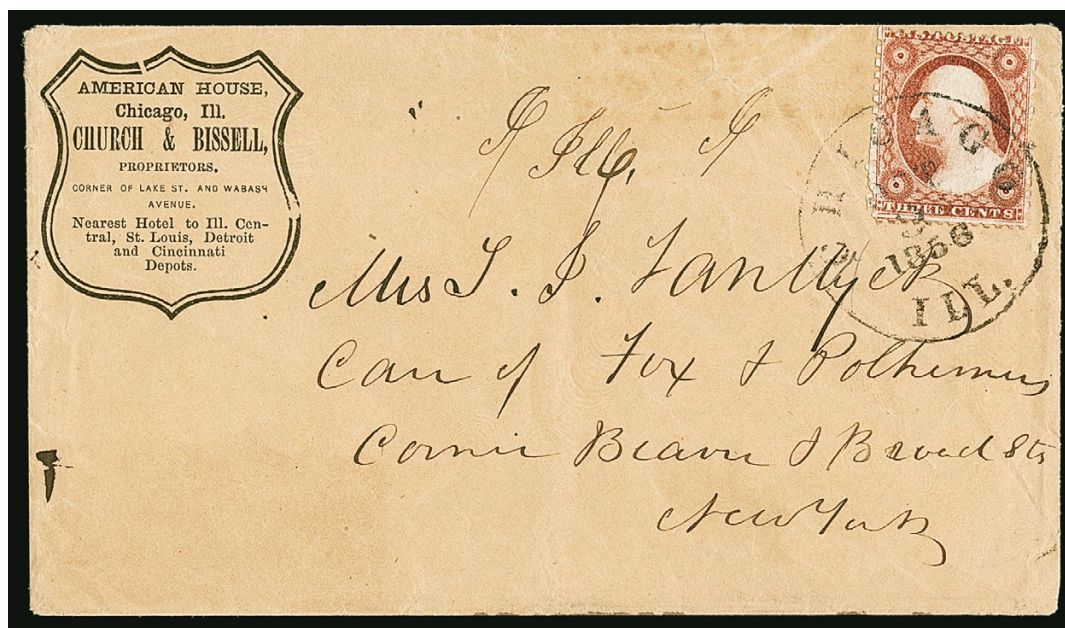 AMERICAN HOUSE,
Chicago, Ill.
CHURCH & BISSELL,
PROPRIETORS.
CORNER OF LAKE ST. AND WABASH
AVENUE.
Nearest Hotel to Ill. Cen-
tral, St. Louis, Detroit
and Cincinnati
Depots.
U.S. POSTAGE
THREE CENTS
CHICAGO
1856
ILL.
Care of Fox & Polhemus
Corner Beaver & Broad Sts
New York